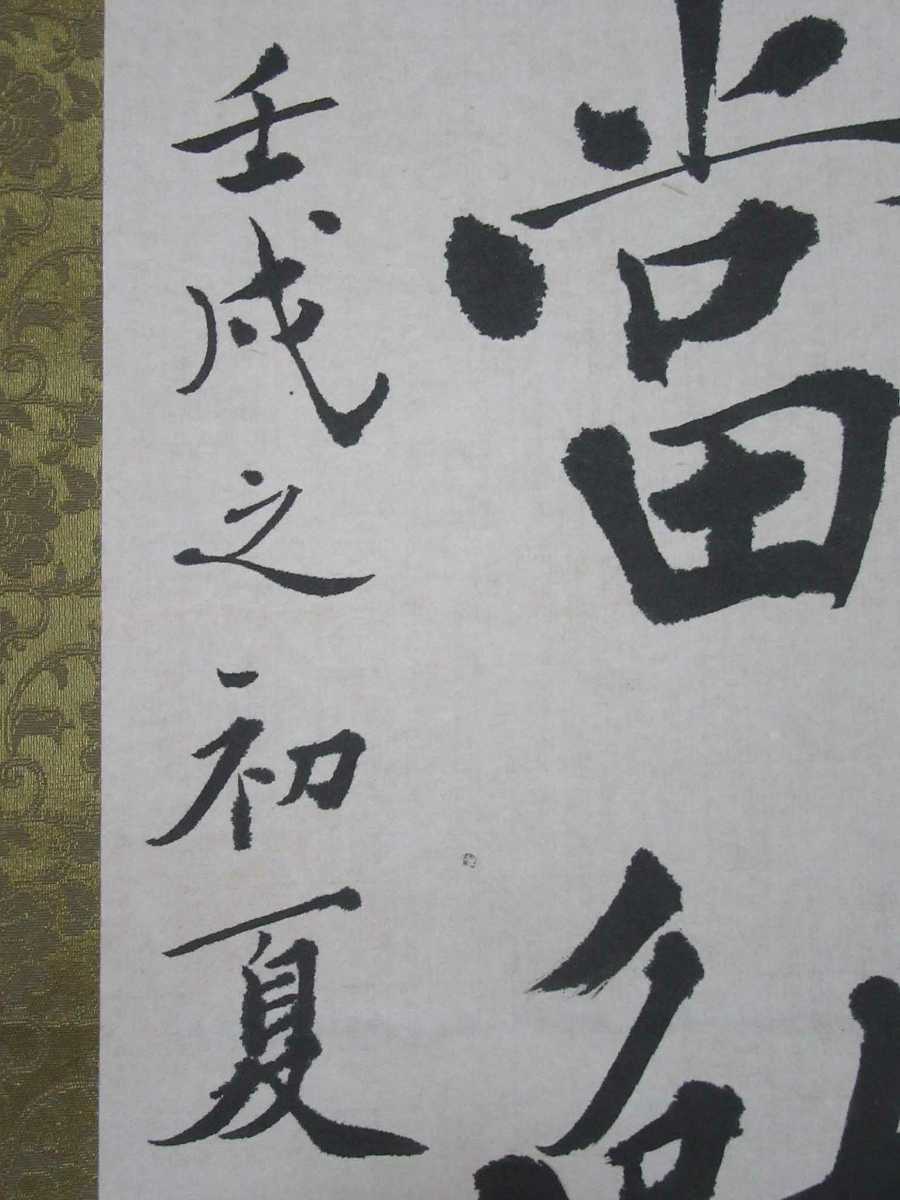 當
壬戌之初夏